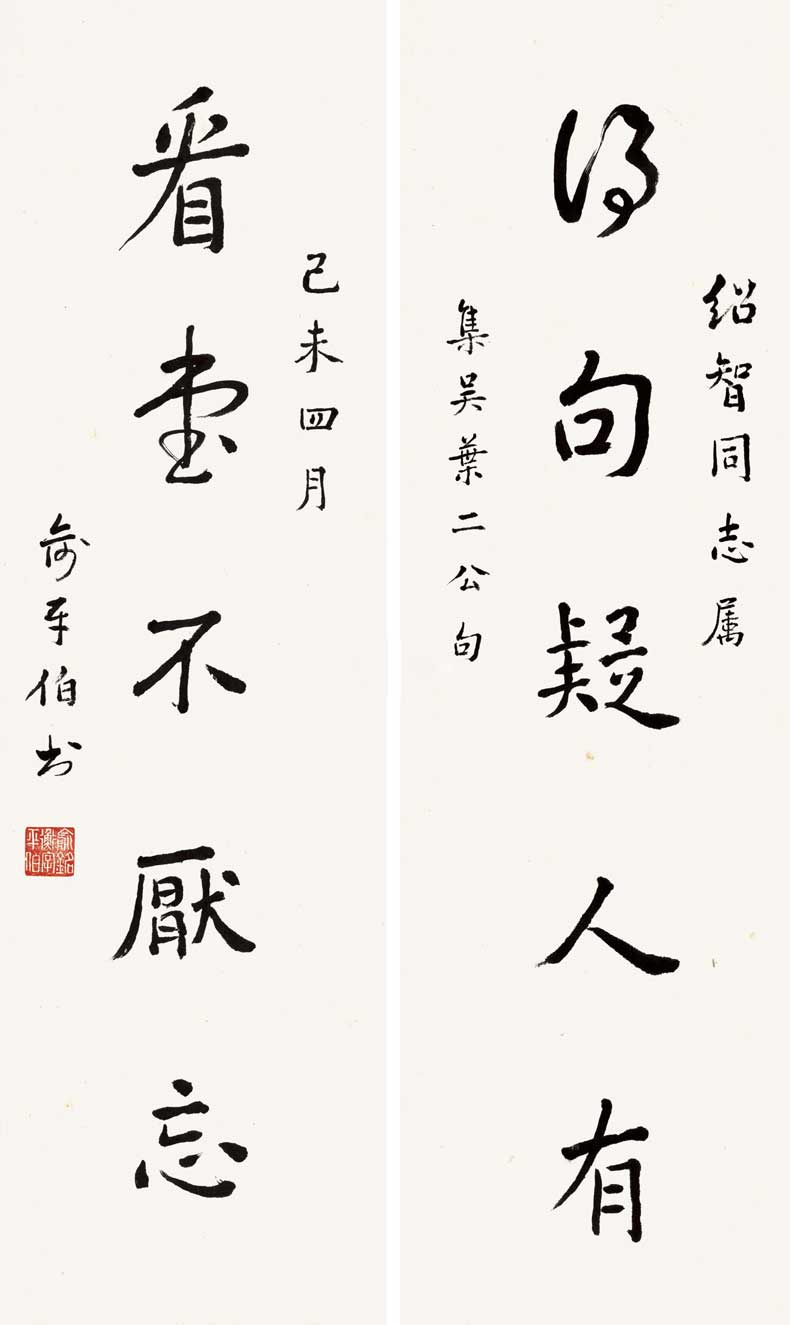 绍智同志属
得句疑人有
集吴葉二公句
己未四月
看書不厭忘
俞平伯书
俞銘衡字平伯